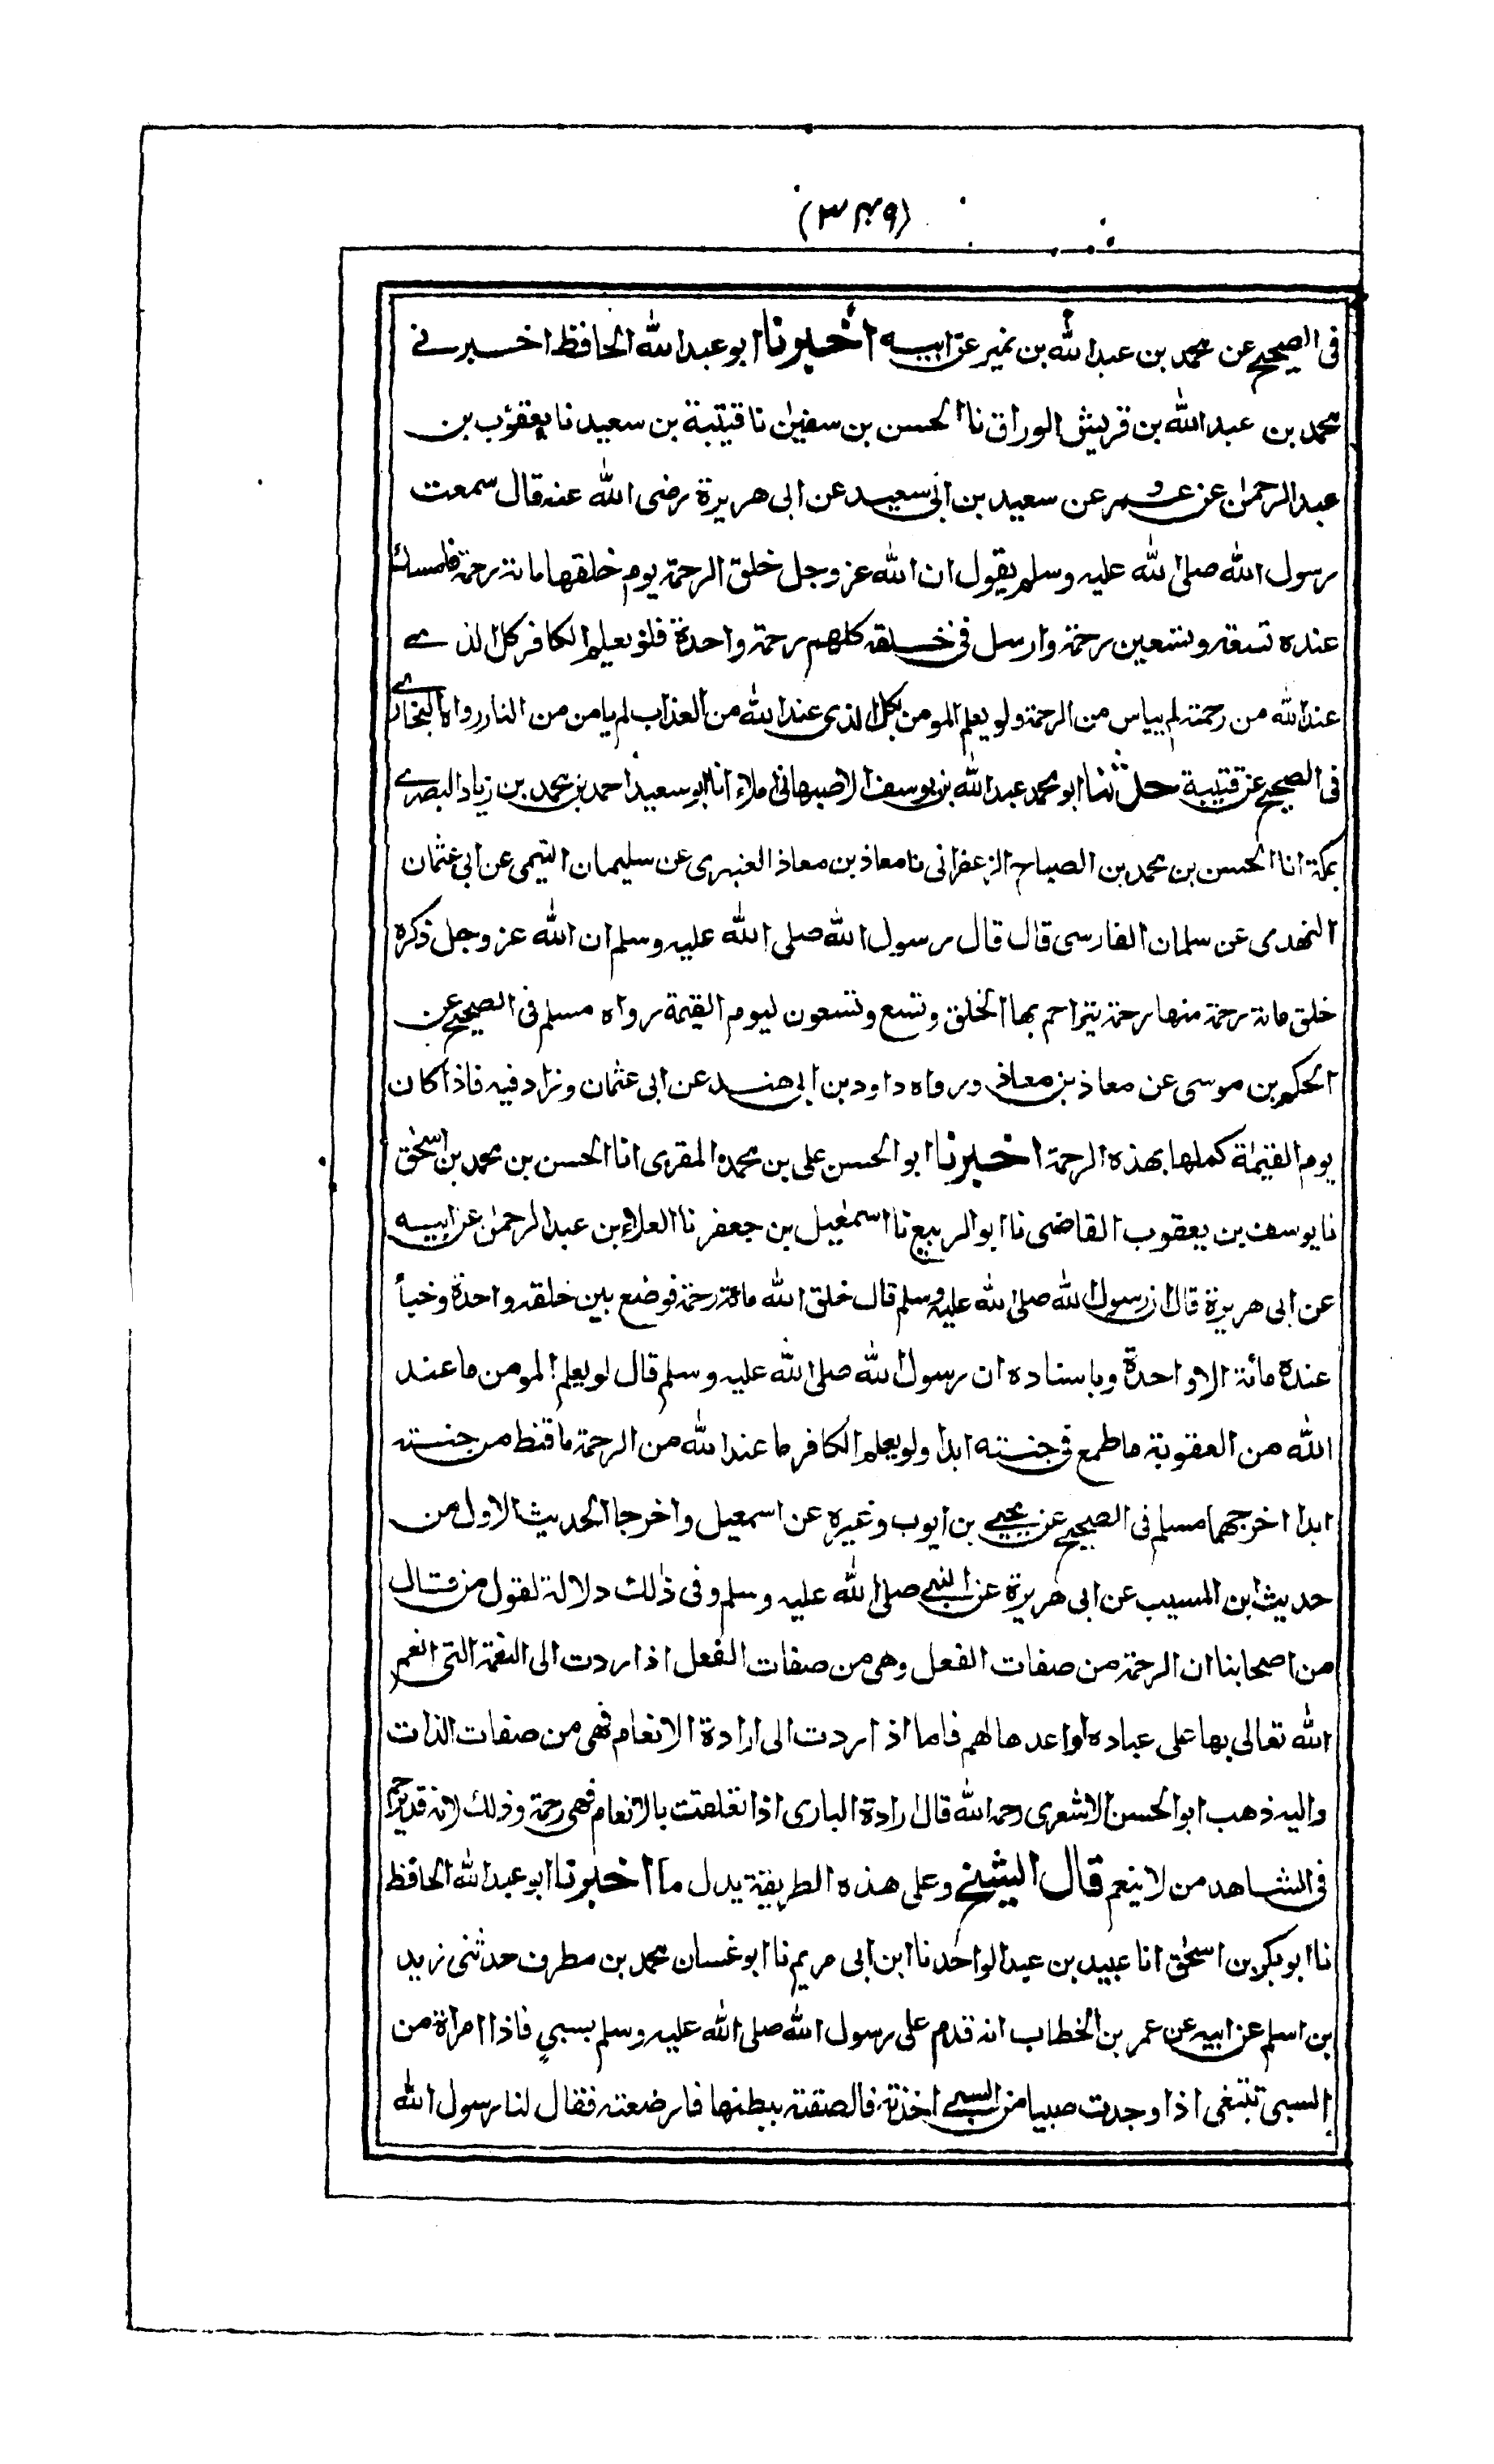 (٣٤٩)
فی الصحیح عن محمد بن عبد الله بن نمیر عن ابیه أخبرنا ابو عبد الله الحافظ اخبرنے
محمد بن عبد الله بن قریش الوراق نا الحسن بن سفین نا قتیبة بن سعید نا یعقوب بن
عبد الرحمن عن عمرو عن سعید بن ابی سعید عن ابی هریرة رضی الله عنه قال سمعت
رسول الله صلی الله علیه وسلم یقول ان الله عز وجل خلق الرحمة یوم خلقها مائة رحمة فامسك
عنده تسعة وتسعین رحمة وارسل فی خلقه کلهم رحمة واحدة فلو یعلم الکافر کل الذے
عند الله من رحمته لم ییاس من الرحمة ولو یعلم المومن بکل الذی عند الله من العذاب لم یامن من النار رواه البخارے
فی الصحیح عن قتیبة حدثنا ابو محمد عبد الله بن یوسف الاصبهانی املاء انا ابو سعید احمد بن محمد بن زیاد البصرے
بمکة انا الحسن بن محمد بن الصباح الزعفرانی نا معاذ بن معاذ العنبری عن سلیمان التیمی عن ابی عثمان
النهدی عن سلمان الفارسی قال قال رسول الله صلی الله علیه وسلم ان الله عز وجل ذکره
خلق مائة رحمة منها رحمة یتراحم بها الخلق وتسع وتسعون لیوم القیمة رواه مسلم فی الصحیح عن
الحکم بن موسی عن معاذ بن معاذ ورواه داود بن ابی هند عن ابی عثمان وزاد فیه فاذا کان
یوم القیمة کملها بهذه الرحمة اخبرنا ابو الحسن علی بن محمد المقری انا الحسن بن محمد بن اسحق
نا یوسف بن یعقوب القاضی نا ابو الربیع نا اسمعیل بن جعفر نا العلاء بن عبد الرحمن عن ابیه
عن ابی هریرة قال ان رسول الله صلی الله علیه وسلم قال خلق الله مائة رحمة فوضع بین خلقه واحدة وخبأ
عنده مائة الا واحدة وباسناده ان رسول الله صلی الله علیه وسلم قال لو یعلم المومن ما عند
الله من العقوبة ما طمع فی جنته ابدا ولو یعلم الکافر ما عند الله من الرحمة ما قنط من جنته
ابدا اخرجهما مسلم فی الصحیح عن یحیی بن ایوب وغیره عن اسمعیل واخرجا الحدیث الاول من
حدیث ابن المسیب عن ابی هریرة عن النبی صلی الله علیه وسلم وفی ذلك دلالة لقول من قال
من اصحابنا ان الرحمة من صفات الفعل وهی من صفات الفعل اذا ردت الی النعمة التی انعم
الله تعالی بها علی عباده او اعدها لهم فاما اذا ردت الی ارادة الانعام فهی من صفات الذات
والیه ذهب ابو الحسن الاشعری رحمه الله قال ارادة الباری اذا تعلقت بالانعام فهی رحمة وذلك لانه قد یرحم
فی الشاهد من لا ینعم قال الشیخ وعلی هذه الطریقة یدل ما اخبرنا ابو عبد الله الحافظ
نا ابو بکر بن اسحق انا عبید بن عبد الواحد نا ابن ابی مریم نا ابو غسان محمد بن مطرف حدثنی زید
بن اسلم عن ابیه عن عمر بن الخطاب انه قدم علی رسول الله صلی الله علیه وسلم بسبی فاذا امراة من
السبی تبتغی اذا وجدت صبیا من السبی اخذته فالصقته ببطنها فارضعته فقال لنا رسول الله